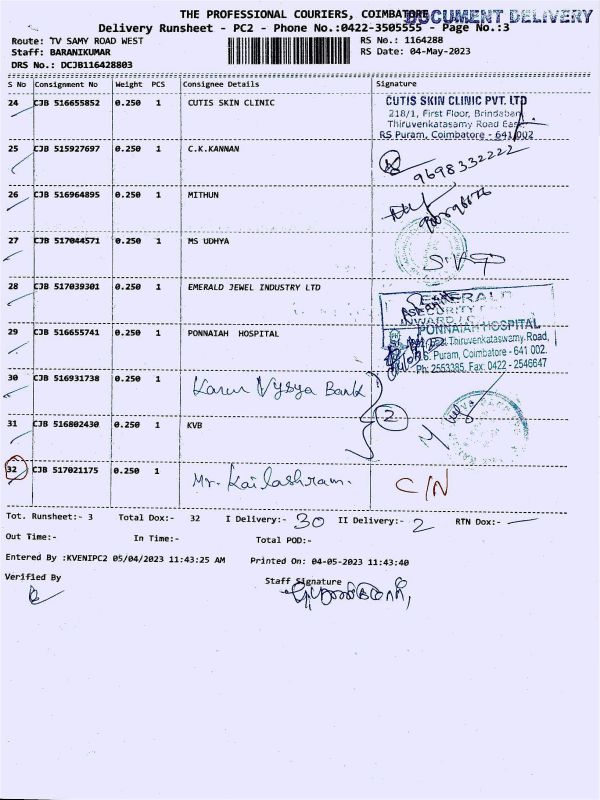 THE PROFESSIONAL COURIERS, COIMBATORE
DOCUMENT DELIVERY
Delivery Runsheet - PC2 - Phone No.:0422-3505555 - Page No.:3
Route: TV SAMY ROAD WEST
RS No.: 1164288
Staff: BARANIKUMAR
RS Date: 04-May-2023
DRS No.: DCJB116428803
S No Consignment No Weight PCS Consignee Details Signature
24 CJB 516655852 0.250 1 CUTIS SKIN CLINIC
CUTIS SKIN CLINIC PVT. LTD
218/1, First Floor, Brindaban
Thiruvenkatasamy Road East,
RS Puram, Coimbatore - 641 002
25 CJB 515927697 0.250 1 C.K.KANNAN
9698332222
26 CJB 516964895 0.250 1 MITHUN
27 CJB 517044571 0.250 1 MS UDHYA
28 CJB 517039301 0.250 1 EMERALD JEWEL INDUSTRY LTD
EMERALD
SECURITY
INWARD
29 CJB 516655741 0.250 1 PONNAIAH HOSPITAL
PONNAIAH HOSPITAL
Thiruvenkataswamy Road,
Puram, Coimbatore - 641 002.
Ph: 2553385, Fax: 0422 - 2546647
30 CJB 516931738 0.250 1 Karur Vysya Bank
2
31 CJB 516802430 0.250 1 KVB
32 CJB 517021175 0.250 1 Mr. Kailashram. C/N
Tot. Runsheet:- 3 Total Dox:- 32 I Delivery:- 30 II Delivery:- 2 RTN Dox:- —
Out Time:- In Time:- Total POD:-
Entered By :KVENIPC2 05/04/2023 11:43:25 AM Printed On: 04-05-2023 11:43:40
Verified By
Staff Signature